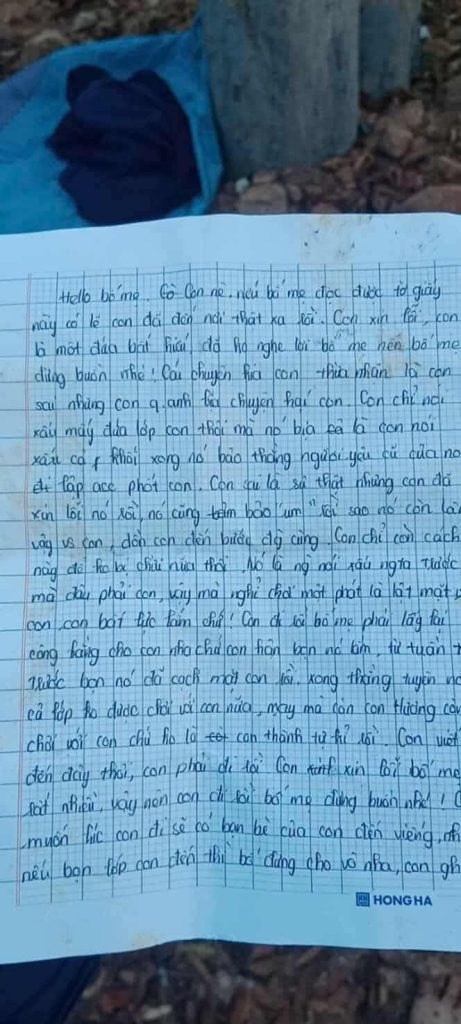 Hello bố mẹ. Cô Con nè, nếu bố mẹ đọc được tờ giấy
này có lẽ con đã đến nơi thật xa rồi. Con xin lỗi, con
là một đứa bất hiếu, đã ko nghe lời bố mẹ nên bố mẹ
đừng buồn nhé! Cái chuyện kia con thừa nhận là con
sai nhưng con q.anh bịa chuyện hại con. Con chỉ nói
xấu mấy đứa lớp con thôi mà nó bịa là con nói
xấu cả khối xong nó bảo thằng người yêu cũ của nó
lập acc phốt con. Con sai là sự thật nhưng con đã
xin lỗi nó rồi, nó cũng bảo "um" rồi sao nó còn làm
vậy vs con, dồn con đến bước đg cùng. Con chỉ còn cách
này để ko bị chửi nữa thôi. Nó là ng nói xấu ngta trước
mà đâu phải con, vậy mà nghỉ chơi một phát là lật mặt
con, con bất lực lắm chứ! Con đi rồi bố mẹ phải lấy lại
công bằng cho con nha chứ con hận bạn nó lắm, từ tuần
trước bạn nó đã cạch mặt con rồi, xong thằng tuyên
cả lớp ko được chơi với con nữa, may mà còn con Hương
chơi với con chứ ko là con thành tự kỉ rồi. Con viết
đến đây thôi, con phải đi rồi. Con xin lỗi bố mẹ
rất nhiều, vậy nên con đi rồi bố mẹ đừng buồn nhé!
muốn lúc con đi sẽ có bạn bè của con đến viếng,
nếu bạn lớp con đến thì bố đừng cho vô nha, con
HONG HA